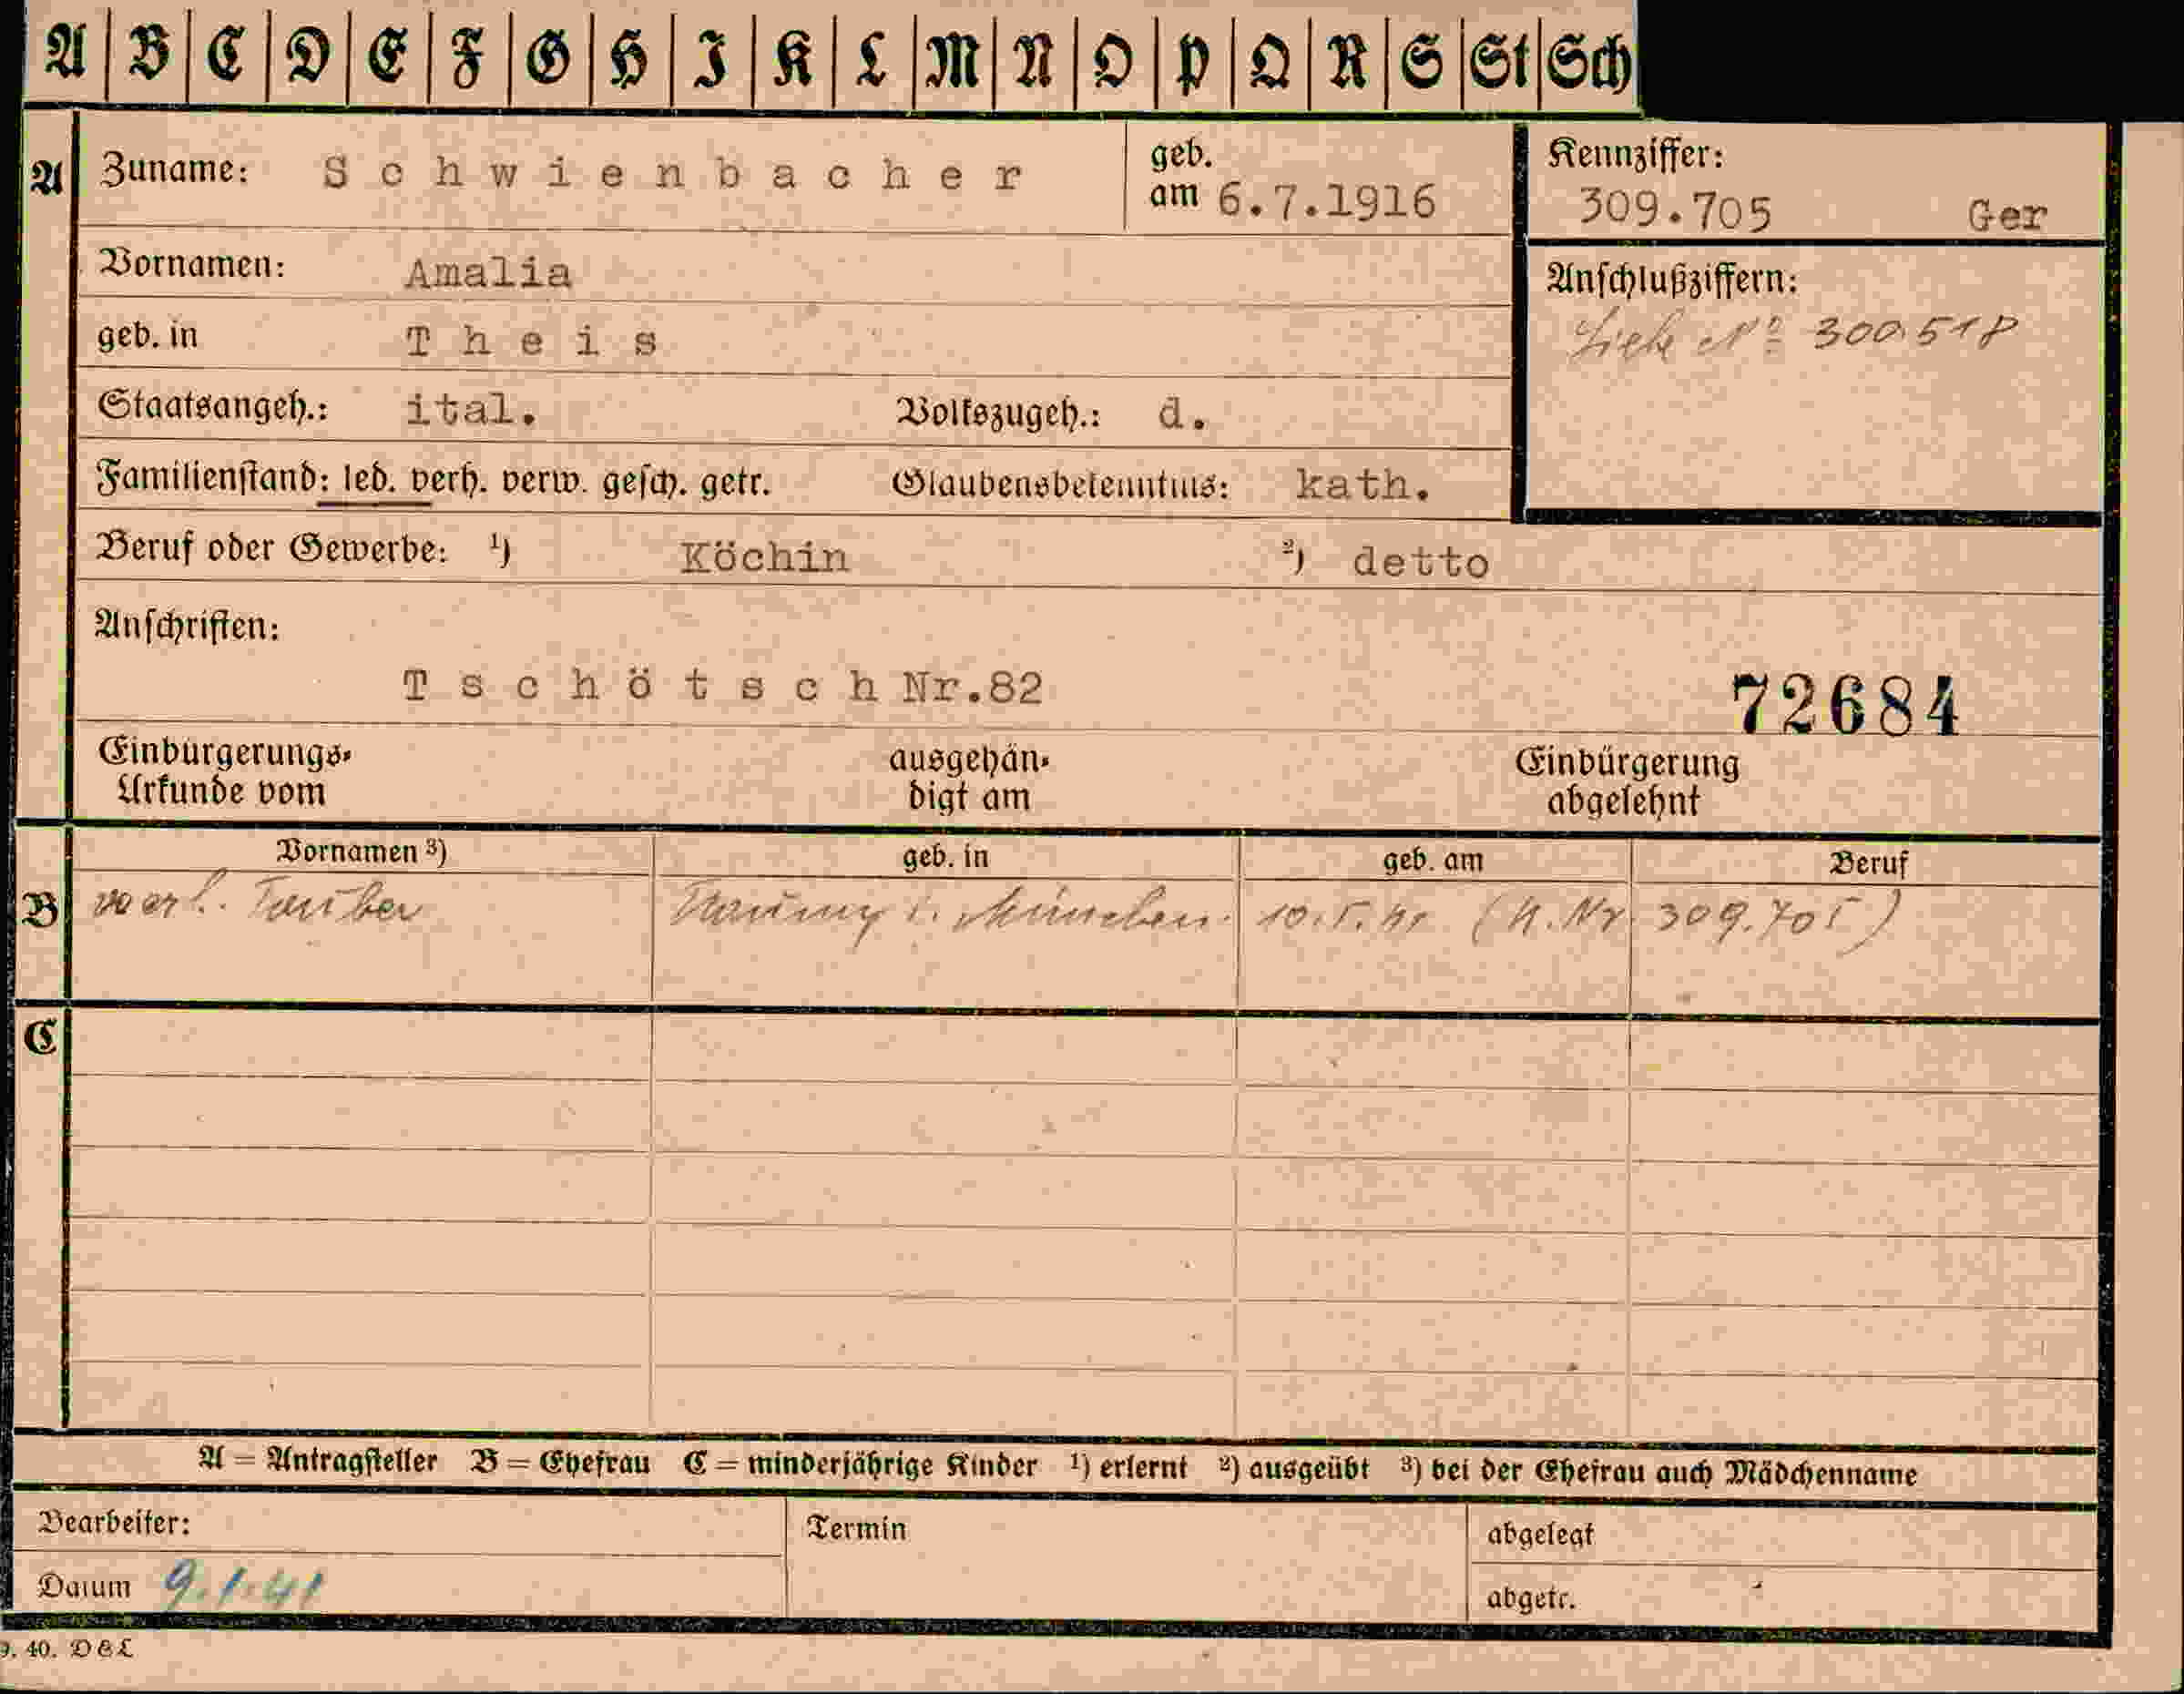 A B C D E F G H I K L M N O P Q R S St Sch
A Zuname: Schwienbacher geb. am 6.7.1916 Kennziffer: 309.705 Ger
Vornamen: Amalia Anschlußziffern:
Siehe Nº 300.518
geb. in Theis
Staatsangeh.: ital. Volkszugeh.: d.
Familienstand: led. verh. verw. gesch. getr. Glaubensbekenntnis: kath.
Beruf oder Gewerbe: ¹) Köchin ²) detto
Anschriften:
Tschötsch Nr.82 72684
Einbürgerungs- ausgehän- Einbürgerung
Urkunde vom digt am abgelehnt
Vornamen ³) geb. in geb. am Beruf
B verh. Tauber München. 10.5.41 (K.Nr. 309.705)
C
A = Antragsteller B = Ehefrau C = minderjährige Kinder ¹) erlernt ²) ausgeübt ³) bei der Ehefrau auch Mädchenname
Bearbeiter: Termin abgelegt
Datum 9.1.41 abgetr.
9. 40. D & L